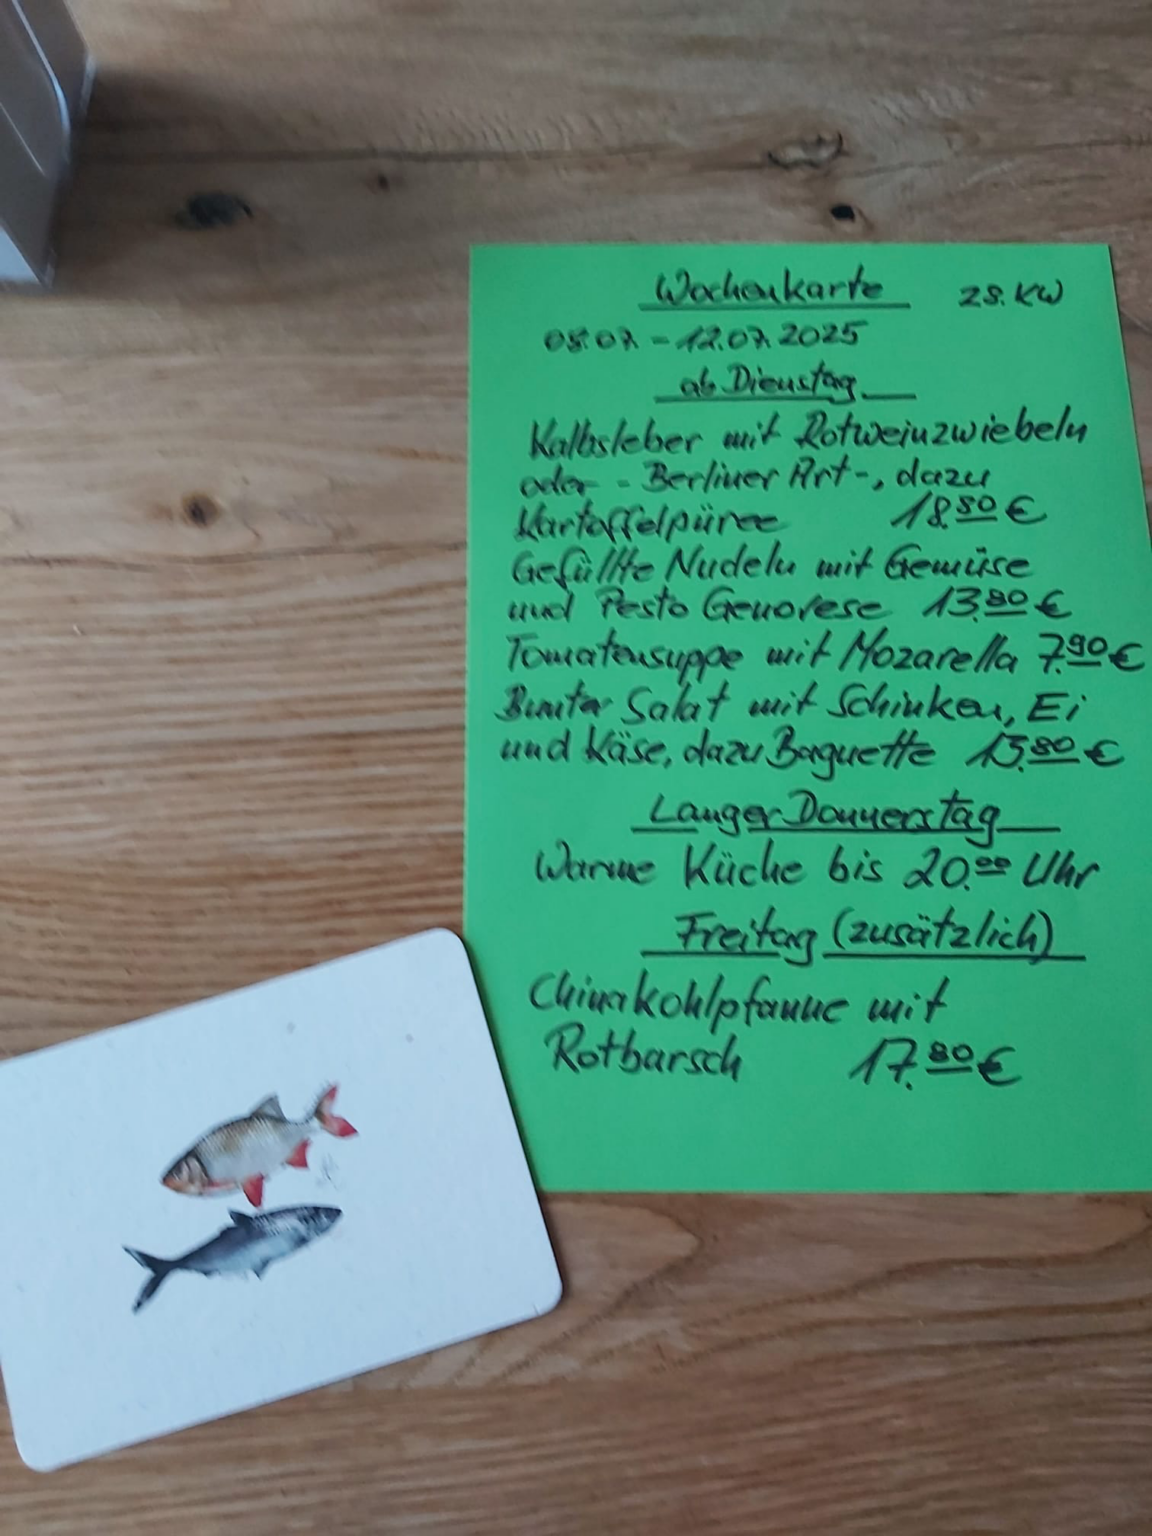 Wochenkarte 28. KW
08.07. - 12.07.2025
ab Dienstag
Kalbsleber mit Rotweinzwiebeln
oder - Berliner Art -, dazu
Kartoffelpüree 18.80 €
Gefüllte Nudeln mit Gemüse
und Pesto Genovese 13.80 €
Tomatensuppe mit Mozarella 7.90 €
Bunter Salat mit Schinken, Ei
und Käse, dazu Baguette 13.80 €
Langer Donnerstag
Warme Küche bis 20.00 Uhr
Freitag (zusätzlich)
Chinakohlpfanne mit
Rotbarsch 17.80 €